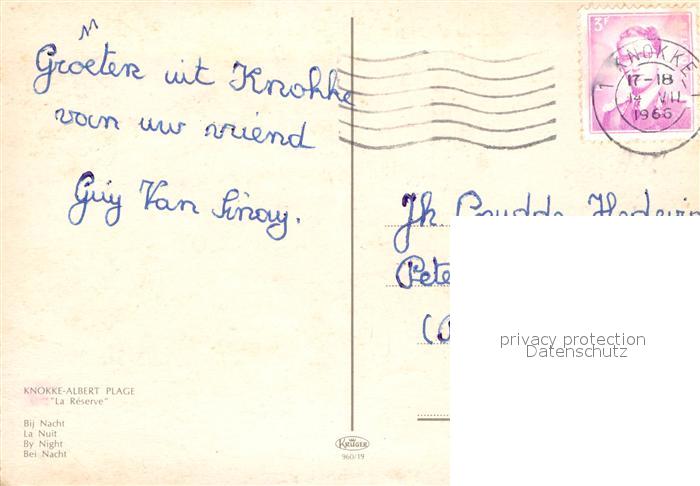 Groeten uit Knokke
van uw vriend
Guy Van Sinay.
KNOKKE-ALBERT PLAGE
"La Réserve"
Bij Nacht
La Nuit
By Night
Bei Nacht
KRÜGER
960/19
3F
1 KNOKKE 1
17-18
14 VII
1966
Jk.
Pete
privacy protection
Datenschutz